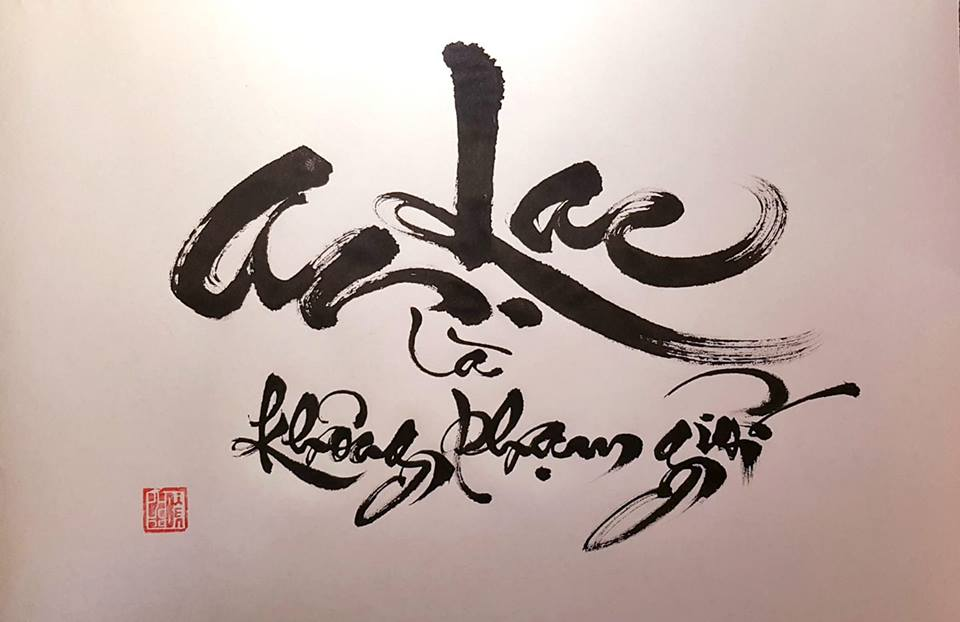 an lạc
là
không phạm giới